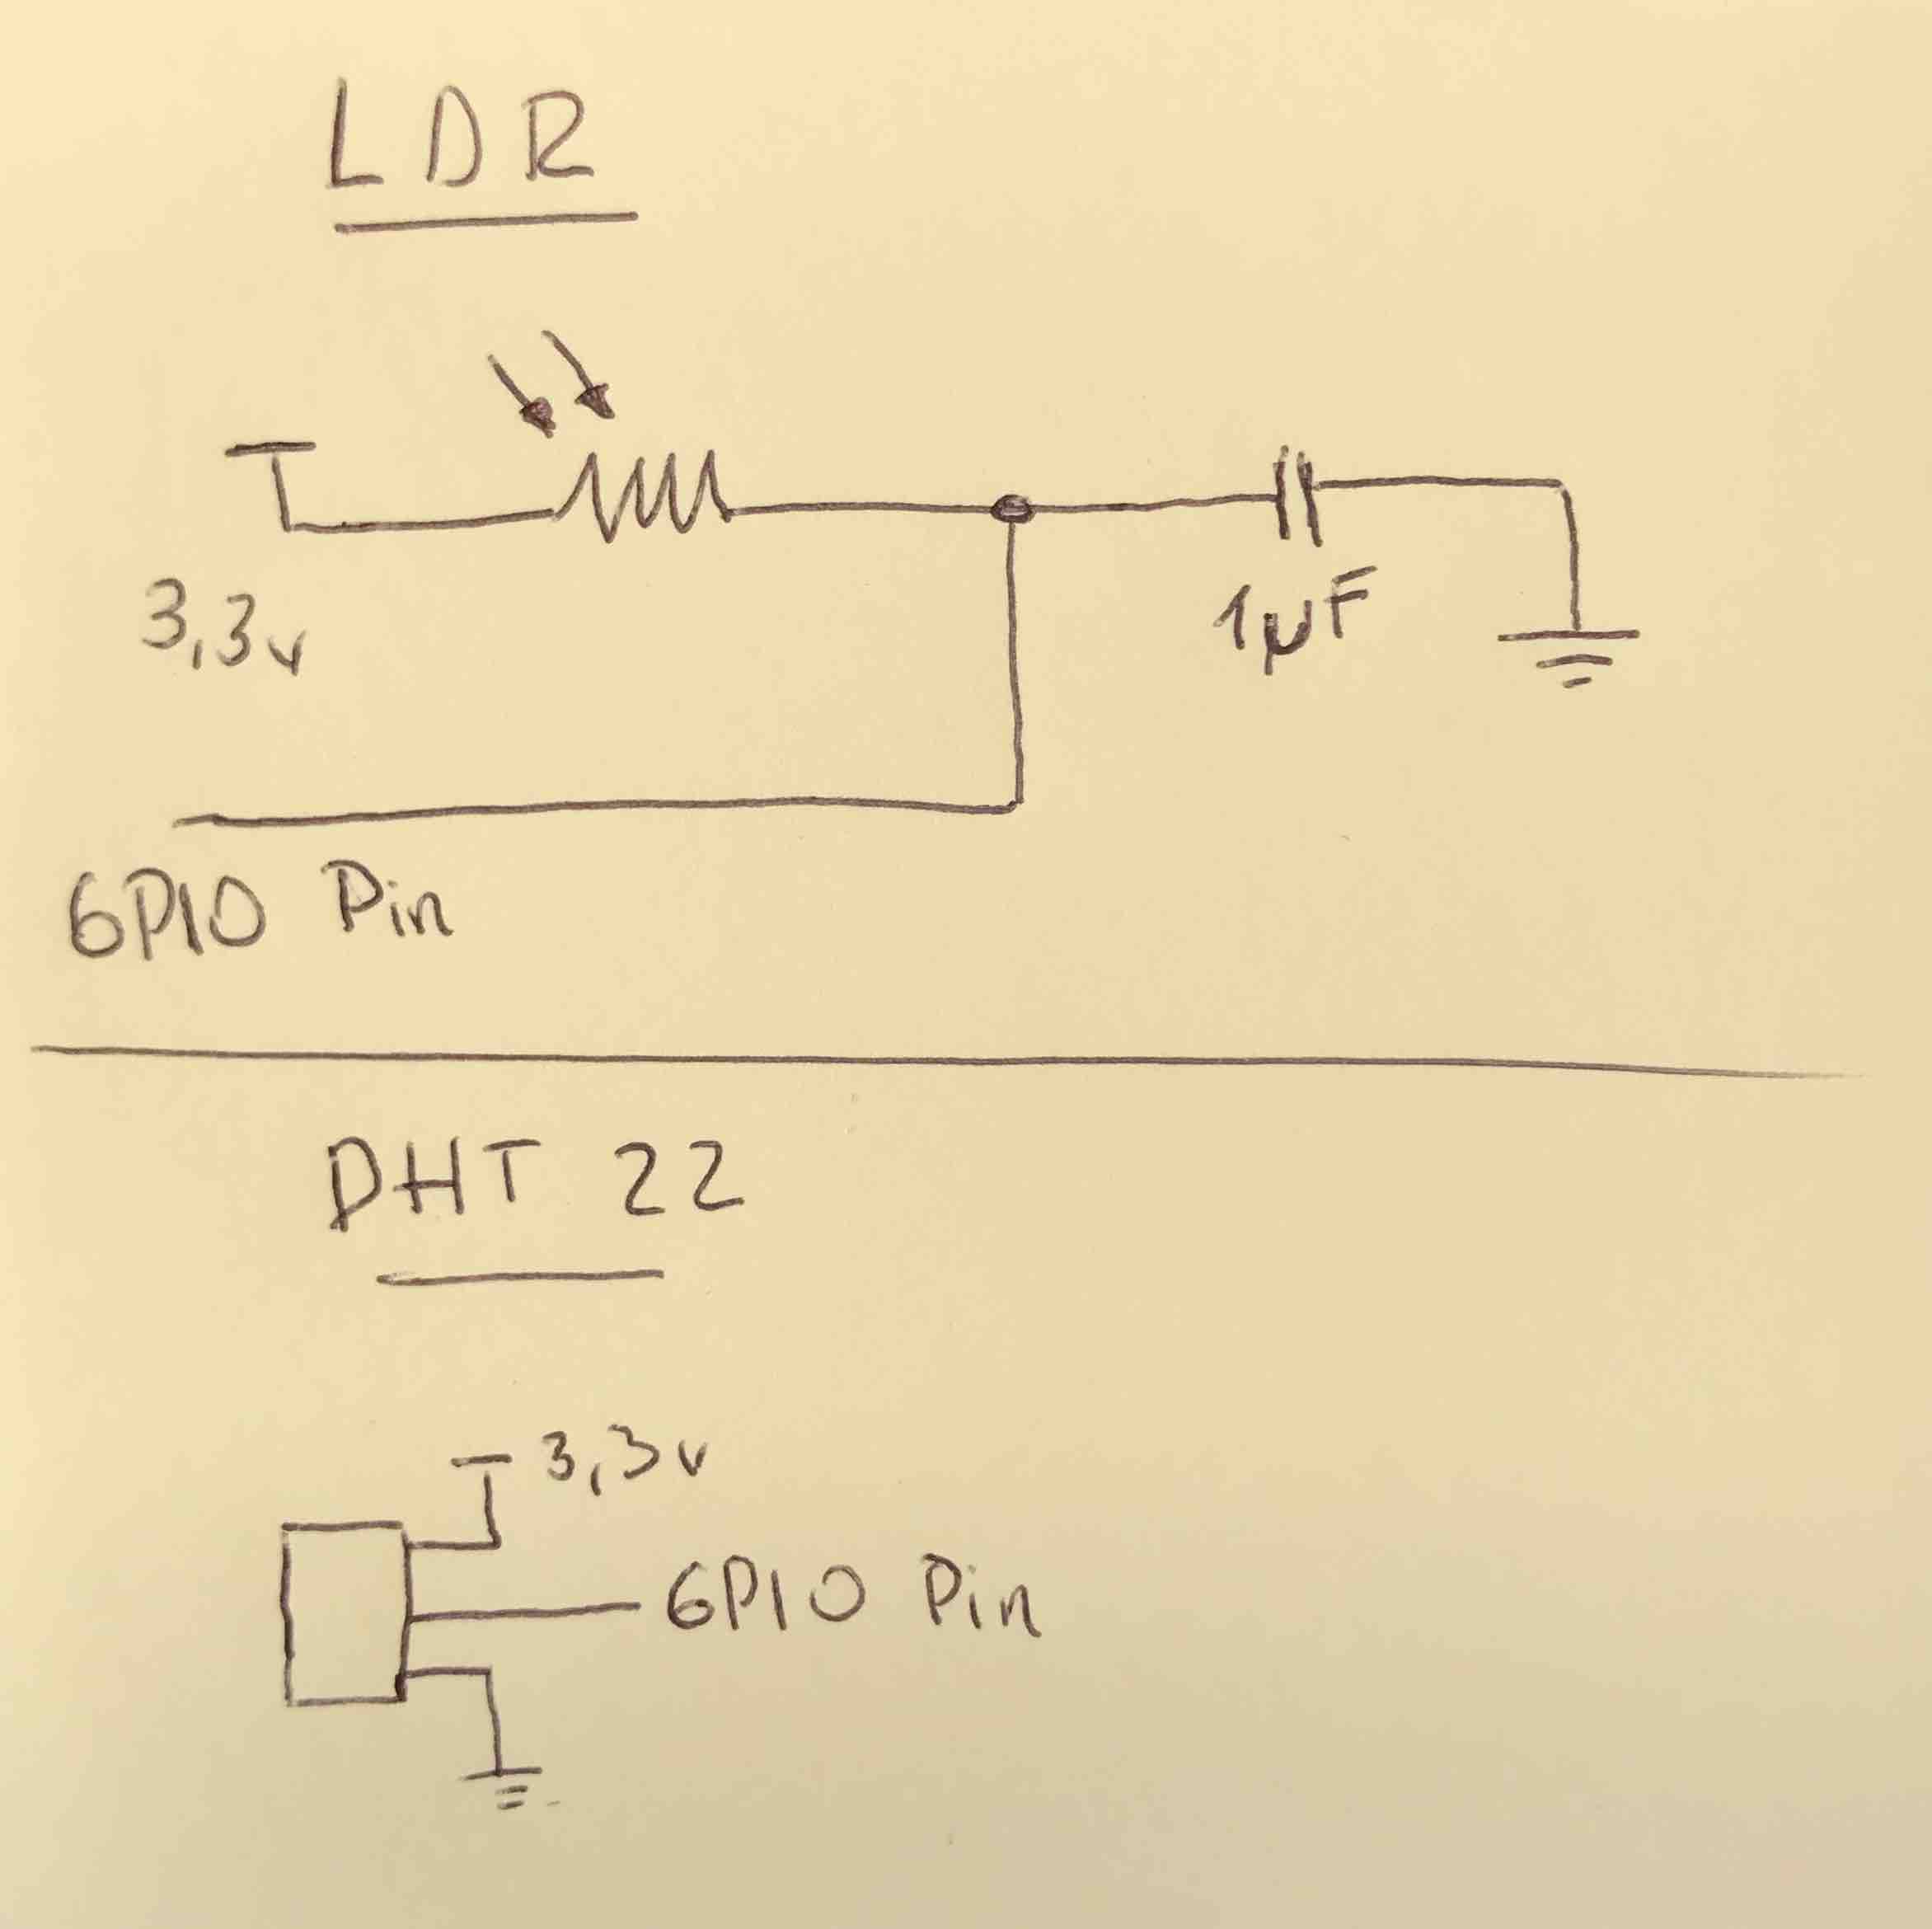 LDR
3,3v
1µF
GPIO Pin
DHT 22
3,3v
GPIO Pin